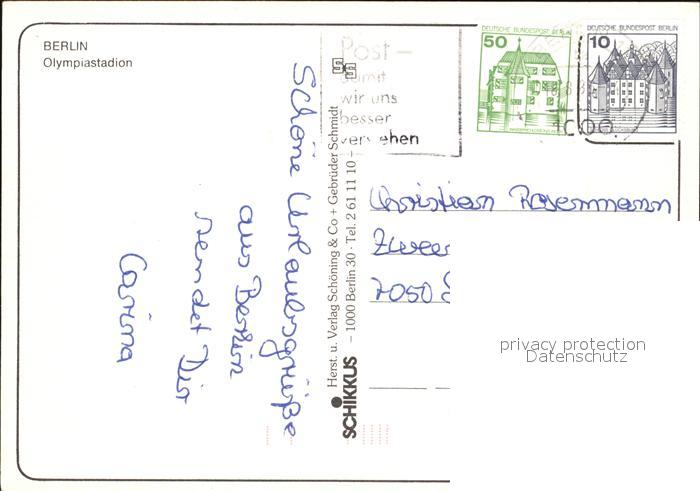 BERLIN
Olympiastadion
Schöne Urlaubsgrüße
aus Berlin
sendet Dir
Carina
SCHIKKUS
Herst. u. Verlag Schöning & Co + Gebrüder Schmidt
– 1000 Berlin 30 · Tel. 2 61 11 10 +
Post –
damit
wir uns
besser
verstehen
DEUTSCHE BUNDESPOST BERLIN
50
DEUTSCHE BUNDESPOST BERLIN
10
Christian Rosermann
7050
privacy protection
Datenschutz